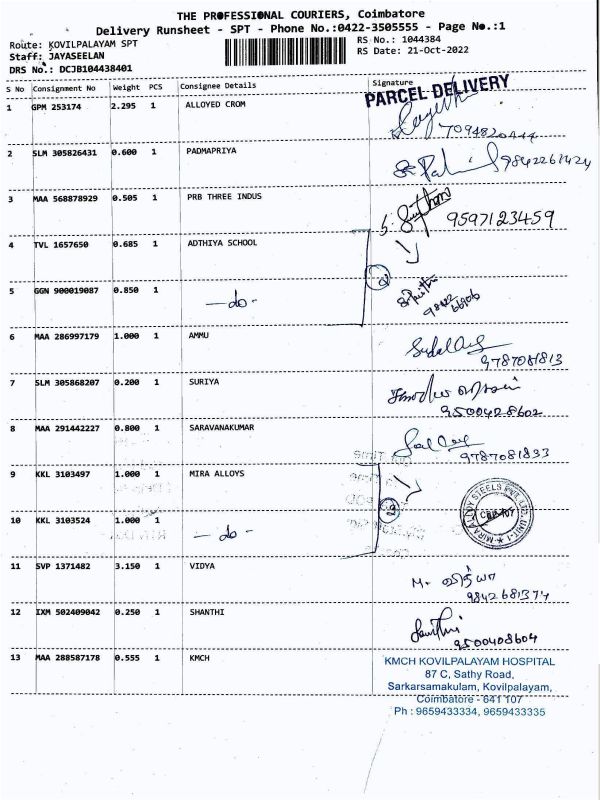 THE PROFESSIONAL COURIERS, Coimbatore
Delivery Runsheet - SPT - Phone No.:0422-3505555 - Page No.:1
Route: KOVILPALAYAM SPT
RS No.: 1044384
Staff: JAYASEELAN
RS Date: 21-Oct-2022
DRS No.: DCJB104438401
S No Consignment No Weight PCS Consignee Details Signature
PARCEL DELIVERY
1 GPM 253174 2.295 1 ALLOYED CROM
2 SLM 305826431 0.600 1 PADMAPRIYA 9842261424
3 MAA 568878929 0.505 1 PRB THREE INDUS 9597123459
4 TVL 1657650 0.685 1 ADTHIYA SCHOOL
5 GGN 900019087 0.850 1 -do-
6 MAA 286997179 1.000 1 AMMU 9787081813
7 SLM 305868207 0.200 1 SURIYA 9500428602
8 MAA 291442227 0.800 1 SARAVANAKUMAR 9787081833
9 KKL 3103497 1.000 1 MIRA ALLOYS
MIRA ALLOY STEELS PVT. LTD. UNIT-1
10 KKL 3103524 1.000 1 - do -
11 SVP 1371482 3.150 1 VIDYA
9842681374
12 IXM 502409042 0.250 1 SHANTHI
9500408604
13 MAA 288587178 0.555 1 KMCH
KMCH KOVILPALAYAM HOSPITAL
87 C, Sathy Road,
Sarkarsamakulam, Kovilpalayam,
Coimbatore - 641 107
Ph : 9659433334, 9659433335